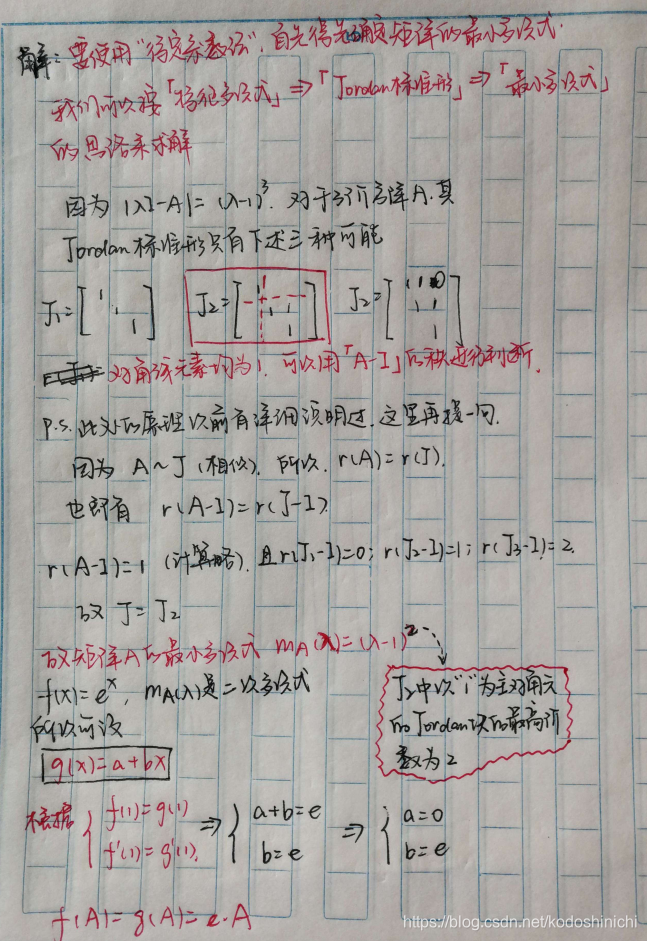 解：要使用“待定系数法”，首先得先确定矩阵的最小多项式.
我们可以按「特征多项式」⇒「Jordan标准形」⇒「最小多项式」
的思路来求解
因为 |λI-A|=(λ-1)³. 对于3阶方阵A.其
Jordan标准形只有下述三种可能
J₁=[1 1 1] J₂=[1 1 1 1] J₂=[1 1 0 1 1 1]
对角线元素均为1, 可以用「A-I」的秩进行判断.
P.S. 此处的原理以前有详细说明过. 这里再提一句.
因为 A~J (相似). 所以. r(A)=r(J).
也即有 r(A-I)=r(J-I).
r(A-I)=1 (计算略). 且r(J₁-I)=0; r(J₂-I)=1; r(J₃-I)=2.
故 J=J₂
故矩阵A的最小多项式 mA(λ)=(λ-1)²
f(x)=eˣ, mA(λ)是二次多项式
所以可设
g(x)=a+bx
J₂中以“1”为主对角元
的Jordan块的最高阶
数为2
根据 { f(1)=g(1) f'(1)=g'(1). ⇒ { a+b=e b=e ⇒ { a=0 b=e
f(A)=g(A)=e·A
https://blog.csdn.net/kodoshinichi